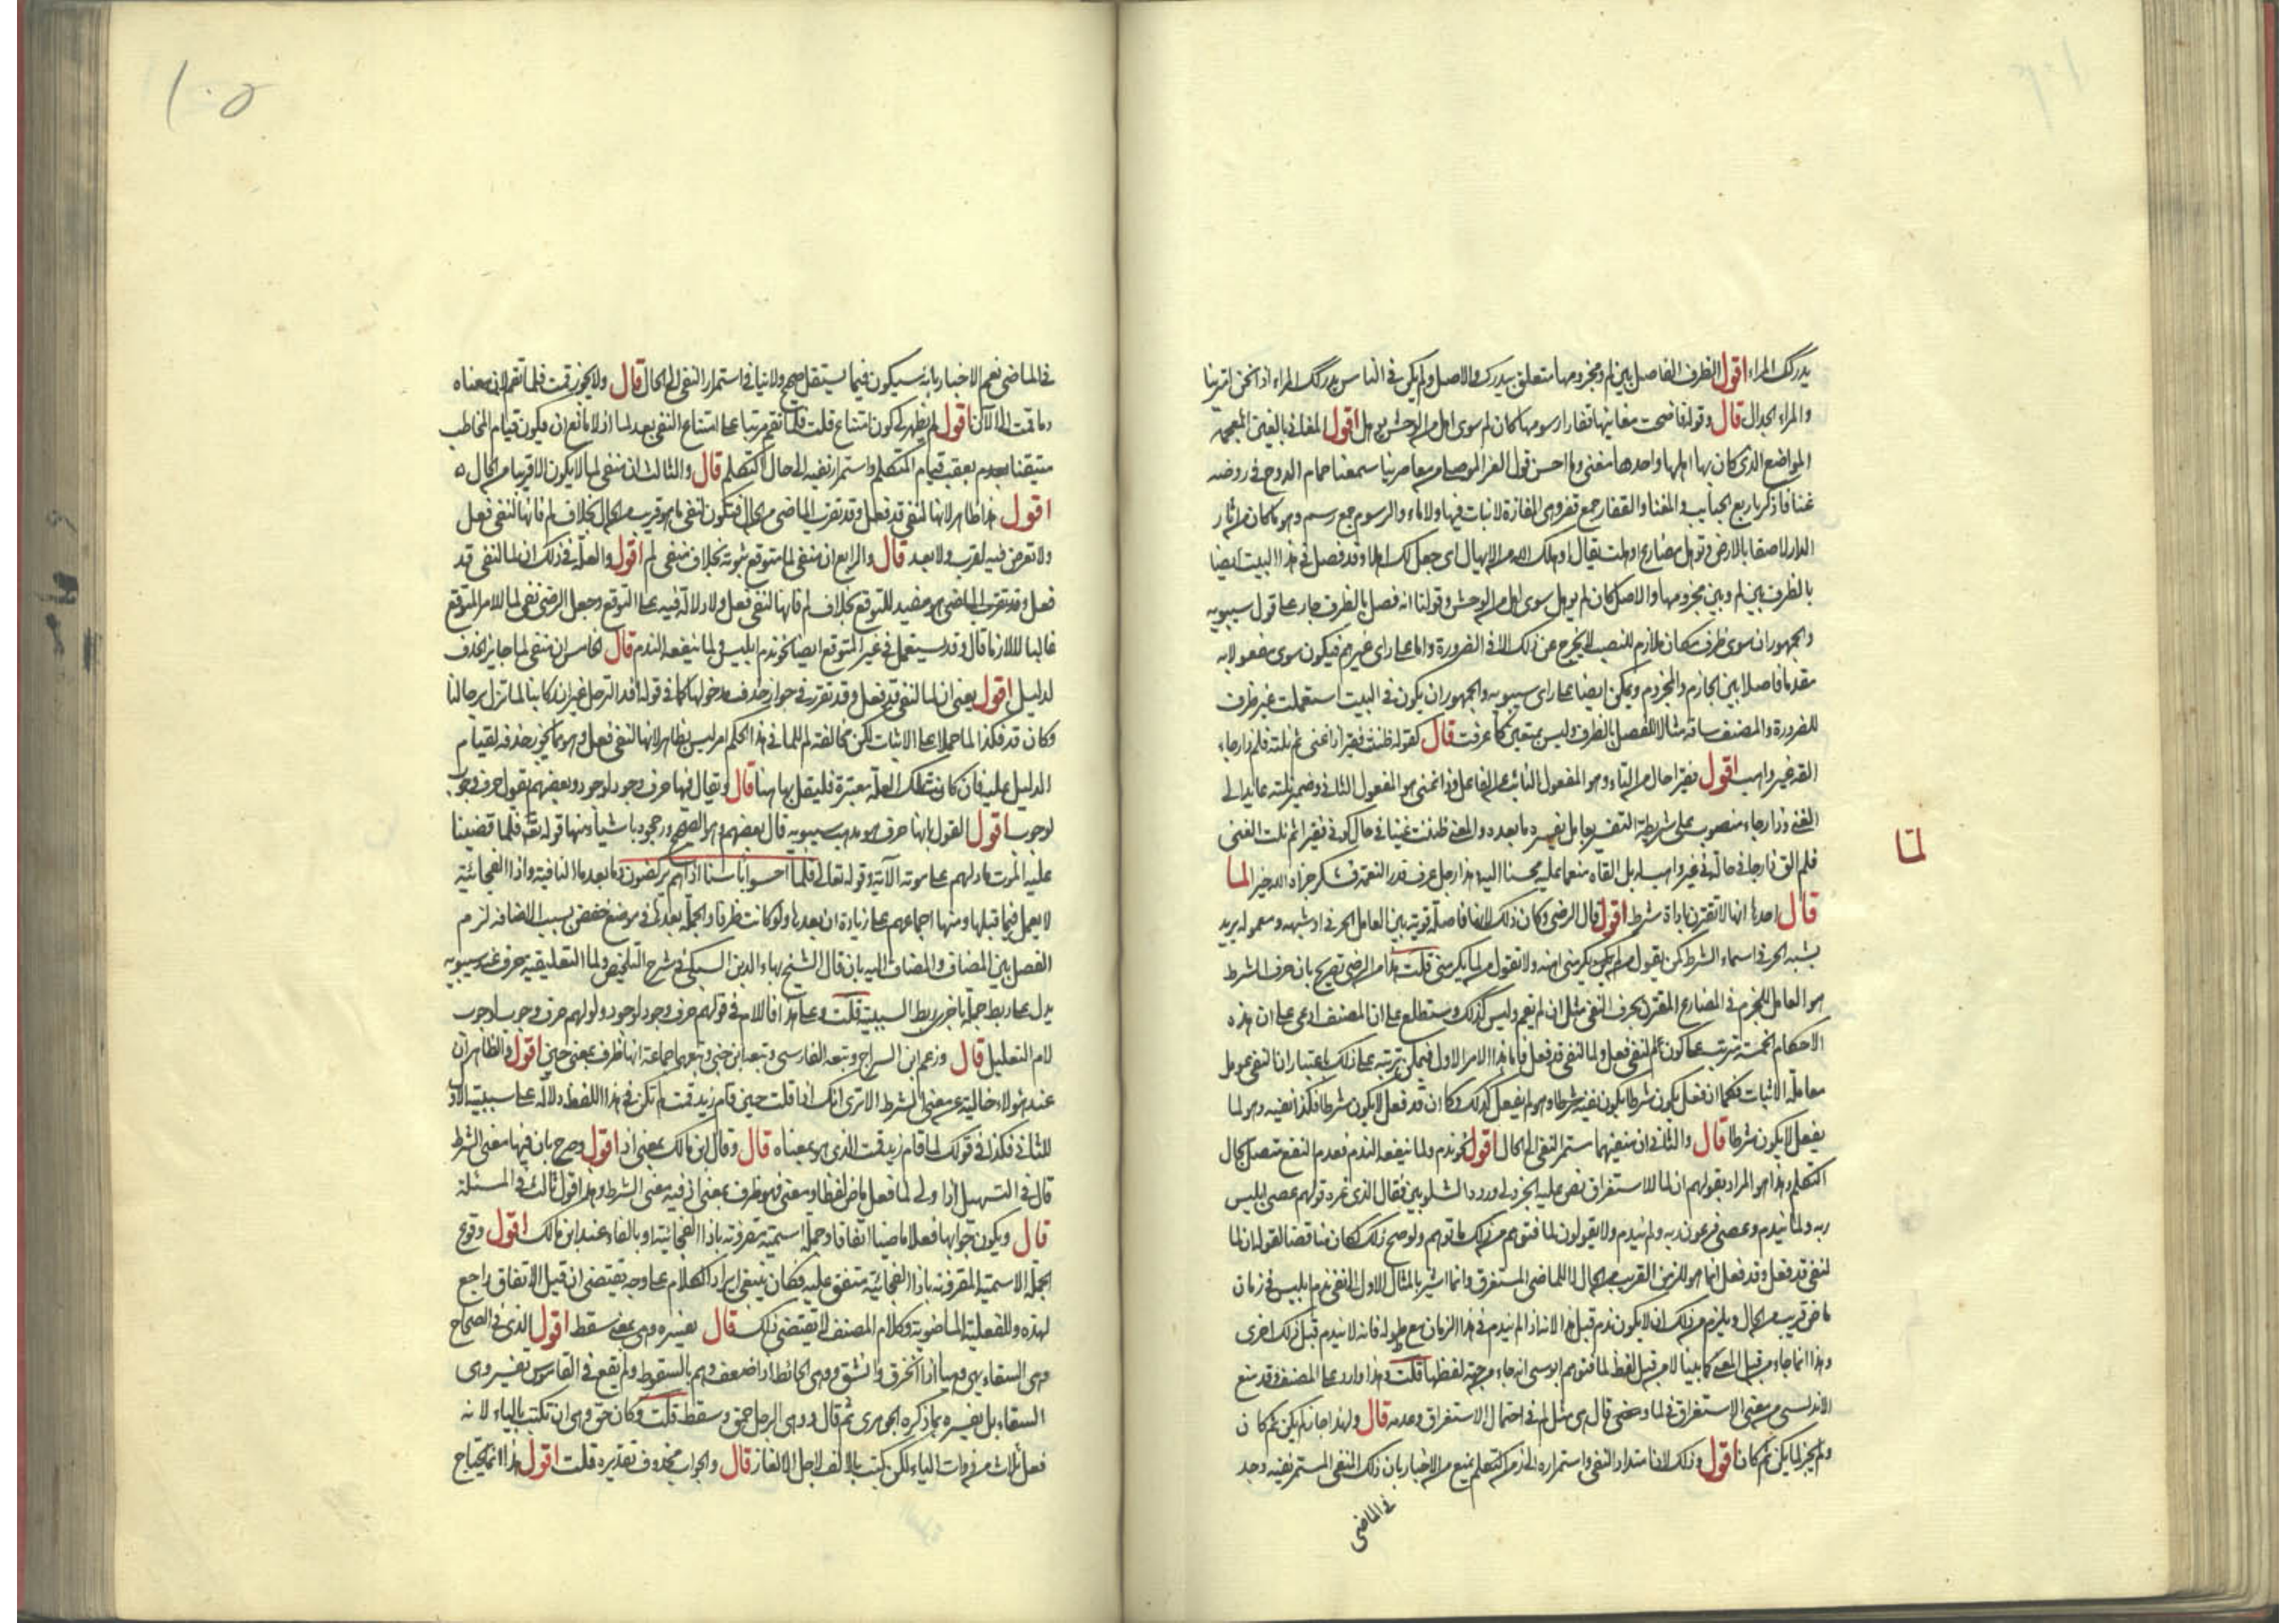 يدركك المراء اقول الظرف الفاصل بين لم ومجزومها متعلق بيدرك والاصل ولم يكن في الناس يدركك المراء اذا نحن امترينا
والمراء الجدال قال وقوله فاضحت مغانيها قفارا رسومها كان لم سوى اهل من الوحش تؤهل اقول المغاني بالغين المعجمه
المواضع الذى كان بها اهلها واحدها مغنى وما احسن قول العز الموصلى من معاصرينا سمعنا حمام الدوح في روضه
غنا فاذكرنا ربع الحبايب والمغنا والقفار جمع قفر وهى المفازة لا نبات فيها ولا ماء والرسوم جمع رسم وهو ما كان من اثار
الدار لاصقا بالارض وتؤهل مضارع اوهلت يقال اوهلك الله من الايهال اى جعل لك اهلا وقد فصل في هذا البيت ايضا
بالظرف بين لم وبين مجزومها والاصل كان لم توهل سوى اهل من الوحش وقولنا انه فصل بالظرف جار على قول سيبويه
والجمهور ان سوى ظرف مكان ملازم للنصب لا يخرج عن ذلك الا في الضرورة واما على راى غيرهم فيكون سوى مفعولا به
مقدما فاصلا بين الجازم والمجزوم ويمكن ايضا على راى سيبويه والجمهور ان يكون في البيت استعملت غير ظرف
للضرورة والمصنف ساقه مثالا للفصل بالظرف وليس بمتعين كما عرفت قال كقوله ظننت فقيرا ذا غنى ثم نلته فلم ذا رجاء
القه غير واهب اقول فقيرا حال من التاء وهو المفعول النائب عن الفاعل وذا غنى هو المفعول الثاني وضمير نلته عايد الى
الغنى وذا رجاء منصوب على شريطة التفسير بعامل يفسره ما بعده والمعنى ظننت غنيا في حال كوني فقيرا ثم نلت الغنى
فلم الق ذا رجا في حالة غير واهب له بل القاه منعما عليه محسنا اليه وهذا رجل عرف قدر النعمة فشكر جزاه الله خيرا لما
لما
قال احدها انها لا تقترن باداة شرط اقول قال الرضى وكان ذلك لانها فاصلة قوية بين العامل الحرفي او شبهه ومعموله يريد
بشبه الحرفي اسماء الشرط كمن يقول من لم يكرمنى اهنه ولا تقول من لما يكرمنى قلت هذا من الرضى تصريح بان حرف الشرط
هو العامل للجزم في المضارع المقترن بحرف النفى مثل ان لم يقم وليس كذلك وستطلع على ان المصنف ادعى على ان هذه
الاحكام الخمسة مرتبة على كون لم لنفى فعل ولما لنفى قد فعل فاما هذا الامر الاول فيمكن ترتبه على ذلك باعتبار ان النفى عومل
معاملة الاثبات فكما ان فعل يكون شرطا يكون نفيه شرطا وهو لم يفعل كذلك وكما ان قد فعل لا يكون شرطا فكذا نفيه وهو لما
يفعل لا يكون شرطا قال والثاني ان منفيهما مستمر النفى الى الحال اقول نحو ندم ولما ينفعه الندم فعدم النفع متصل بحال
التكلم وهذا هو المراد بقولهم ان لما للاستغراق نص عليه الجزولي وردد الشلوبين فقال الذى غره قولهم عصى ابليس
ربه ولما يندم وعصى فرعون ربه ولم يندم ولا يقولون لما فتوهم من ذلك ما توهم ولو صح ذلك لكان مناقضا لقوله ان لما
لنفى قد فعل وقد فعل انما هو للزمن القريب من الحال لا للماضى المستغرق وانما اشير بالمثال الاول الى نفى ندم ابليس في زمان
ماض قريب من الحال ويلزم من ذلك ان لا يكون ندم قبل هذا لانه اذا لم يندم في هذا الزمان مع طوله فانه لا يندم قبل ذلك احرى
وهذا انما جاء من قبل المعنى كما بينا لا من قبل لفظ لما فتوهم ابو موسى انه جاء من جهة لفظها قلت وهذا وارد على المصنف وقد منع
الاندلسى من معنى الاستغراق في لما وحتى قال هى مثل لم في احتمال الاستغراق وعدمه قال ولهذا جاز لم يكن ثم كان
ولم يجز لما يكن ثم كان اقول وذلك لان امتداد النفى واستمراره الى زمن التكلم يمنع من الاخبار بان ذلك النفى المستمر نفيه وجد
في الماضى
١٠٥
في الماضى نعم الاخبار بانه سيكون فيما يستقبل صحيح ولا ينافي استمرار النفى الى الحال قال ولا يجوز قمت فلما تقم لان معناه
وما قمت الى الان اقول لم يظهر لى كون امتناع قلت فلما تقم مرتبا على امتناع النفى بعد لما اذ لا مانع ان يكون قيام المخاطب
متيقنا بعدم يعقب قيام المتكلم واستمرار نفيه الى حال التكلم قال والثالث ان منفى لما لا يكون الا قريبا من الحال ه
اقول هذا ظاهر لانها لنفى قد فعل وقد تقرب الماضى من الحال فتكون لنفى ما هو قريب من الحال بخلاف لم فانها لنفى فعل
ولا تعرض فيه لقرب ولا بعد قال والرابع ان منفى لما متوقع ثبوته بخلاف منفى لم اقول والعلة في ذلك ان لما لنفى قد
فعل وقد تقرب الماضى وهو مفيد للتوقع بخلاف لم فانها لنفى فعل ولا دلالة فيه على التوقع وجعل الرضى نفى لما للامر المتوقع
غالبا لا لازما قال وقد يستعمل في غير المتوقع ايضا نحو ندم ابليس ولما ينفعه الندم قال الخامس ان منفى لما جايز الحذف
لدليل اقول يعنى ان لما لنفى قد فعل وقد تقرر في جواز حذف مدخولها كما في قوله افد الترحل غير ان ركابنا لما تزل برحالنا
وكان قد فكذا لما حملا على الاثبات لكن مخالفة لم للما في هذا الحكم امر ليس بظاهر لانها لنفى فعل وهو مما يجوز حذفه لقيام
الدليل عليه فان كانت تلك العلة معتبرة فليقل بها هنا قال ويقال فيها حرف وجود لوجود وبعضهم يقول حرف وجوب
لوجوب اقول القول بانها حرف هو مذهب سيبويه قال بعضهم وهو الصحيح ورجح باشياء منها قوله تعالى فلما قضينا
عليه الموت ما دلهم على موته الاية وقوله تعالى فلما احسوا باسنا اذا هم يركضون وما بعد ما النافية واذا الفجائية
لا يعمل فيما قبلها ومنها اجماعهم على زيادة ان بعدها ولو كانت ظرفا والجملة بعدها في موضع خفض بسبب الاضافة لزم
الفصل بين المضاف والمضاف اليه بان قال الشيخ بهاء الدين السبكى في شرح التلخيص ولما التعليقية حرف عند سيبويه
يدل على ربط جملة باخرى ربط السببية قلت وعلى هذا فاللام في قولهم حرف وجود لوجود ولولهم حرف وجوب لوجوب
لام التعليل قال وزعم ابن السراج وتبعه الفارسى وتبعه ابن جنى وتبعهم جماعة انها ظرف بمعنى حين اقول والظاهر ان
عند هولاء خالية عن معنى الشرط الا ترى انك اذا قلت حين قام زيد قمت لم تكن في هذا اللفظ دلالة على سببية الاول
للثاني فكذا في قولك لما قام زيد قمت الذى هو بمعناه قال وقال ابن مالك بمعنى اذ اقول وصرح بان فيها معنى الشرط
قال في التسهيل اذا ولى لما فعل ماض لفظا ومعنى فهو ظرف بمعنى اذ فيه معنى الشرط وهذا قول ثالث في المسئلة
قال ويكون جوابها فعلا ماضيا اتفاقا وجملة اسمية مقرونة باذا الفجائية او بالفاء عند ابن مالك اقول وقوع
الجملة الاسمية المقرونة باذا الفجائية متفق عليه فكان ينبغى ايراد الكلام على وجه يقتضى ان قبل الاتفاق راجع
لهذه وللفعلية الماضوية وكلام المصنف لا يقتضى ذلك قال تفسيره وهى بمعنى سقط اقول الذى في الصحاح
وهى السقاء يهى وهيا اذا انخرق وانشق ووهى الحائط اذا ضعف وهم بالسقوط ولم يقع في القاموس تفسير وهى
السقاء بل يفسره بما ذكره الجوهرى ثم قال ووهى الرجل حمق وسقط قلت وكان حق وهى ان تكتب بالياء لانه
فعل ثلاثى من ذوات الياء لكن كتبت بالالف لاجل الالغاز قال والجواب محذوف تقديره قلت اقول هذا انما يحتاج